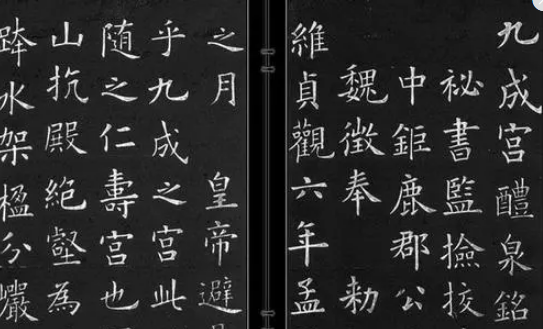 九成宮醴泉銘
祕書監撿挍
中鉅鹿郡公
魏徵奉 勑
維貞觀六年孟
之月 皇帝避
乎九成之宮此
随之仁壽宮也
山抗殿絕壑為
水架楹分巖